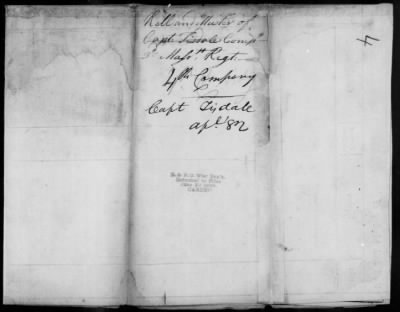 Roll and Muster of
Capt Tisdale Compy
3d Massts Regt
4th Company
Capt Tisdale
apl 82
4